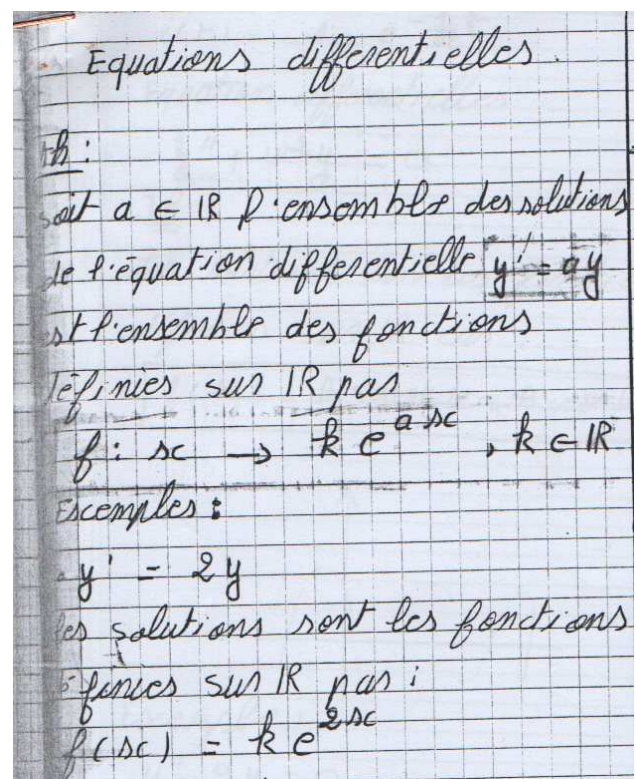 Equations differentielles.
th :
soit a ∈ IR l'ensemble des solutions
de l'équation differentielle y' = ay
est l'ensemble des fonctions
définies sur IR par
f : x → k e^{ax} , k ∈ IR
Exemples :
y' = 2y
les solutions sont les fonctions
définies sur IR par :
f(x) = k e^{2x}